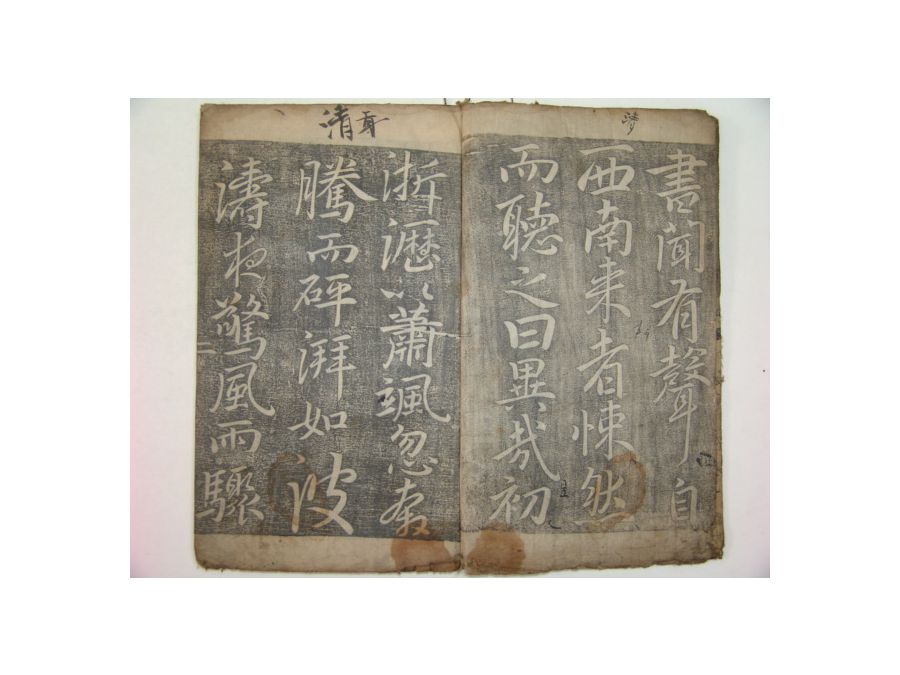 書聞有聲自
西南来者悚然
而聽之曰異哉初
淅瀝以蕭颯忽奔
騰而砰湃如波
濤夜驚風雨驟